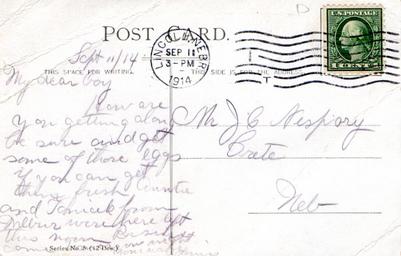 POST CARD.
LINCOLN, NEBR.
SEP 11
3-PM
1914
U.S. POSTAGE
1 CENT 1
Sept 11/14
THIS SPACE FOR WRITING.
THIS SIDE IS FOR THE ADDRESS
My dear boy
How are
you getting along
be sure and get
some of those eggs
if you can get
them fresh Auntie
and from
Wilbur were here left
this noon
Mr J C
Crete
Neb
Series No.